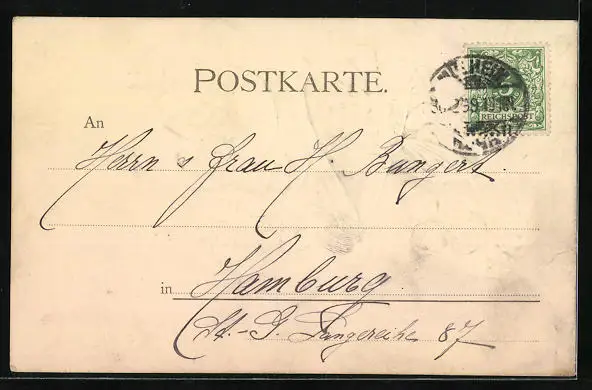 POSTKARTE.
5
REICHSPOST
An
Herrn & Frau H. Bungert.
in Hamburg
St. G. Langereihe 87